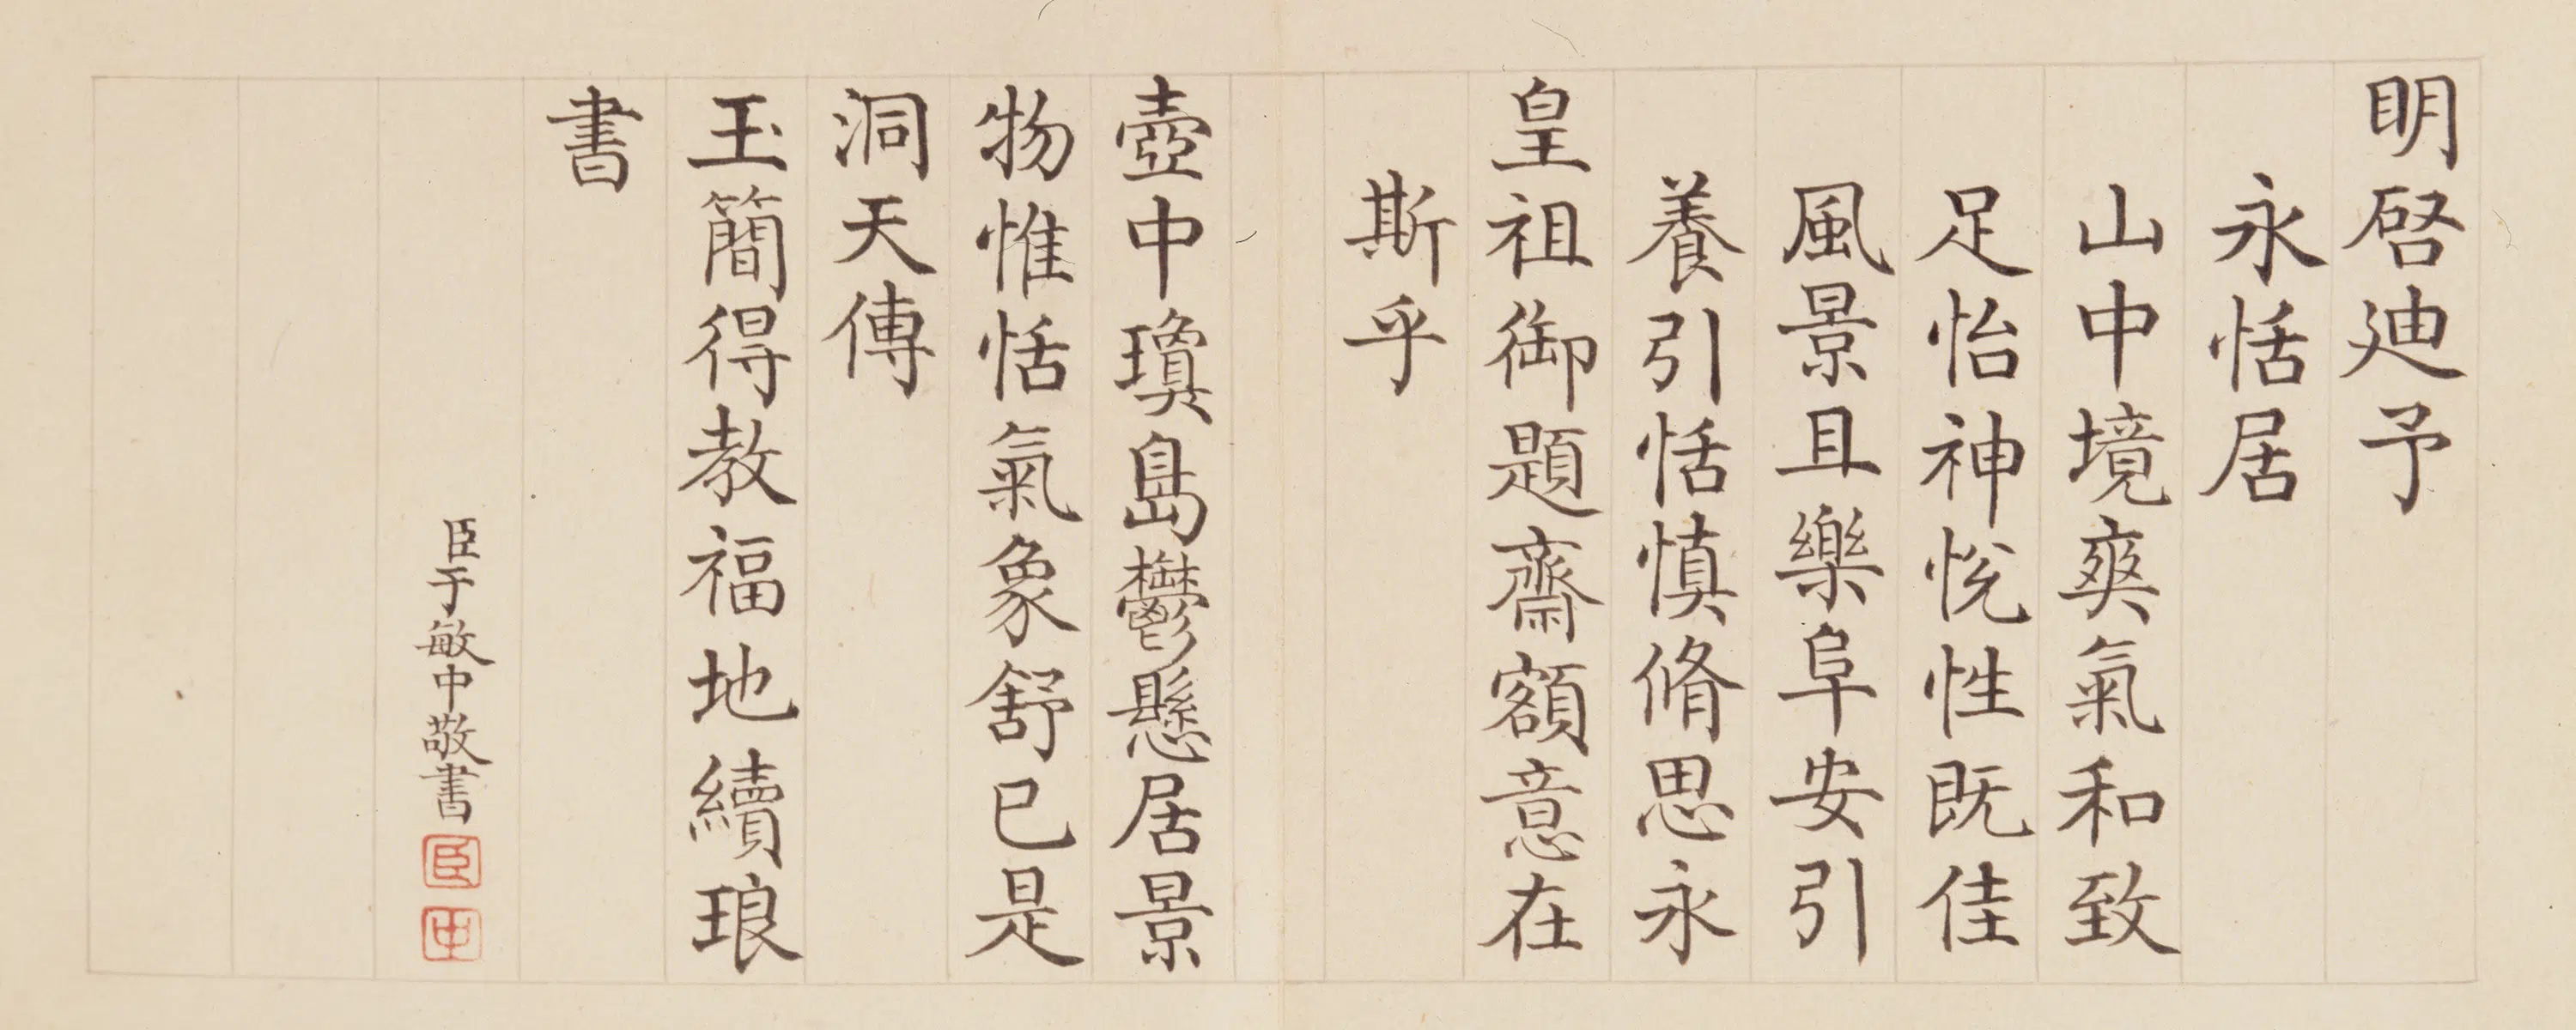 明啓迪予
永恬居
山中境爽氣和致
足怡神悅性既佳
風景且樂阜安引
養引恬慎脩思永
皇祖御題齋額意在
斯乎
壺中瓊島鬱懸居景
物惟恬氣象舒已是
洞天傳
玉簡得教福地續琅
書
臣于敏中敬書
臣
中